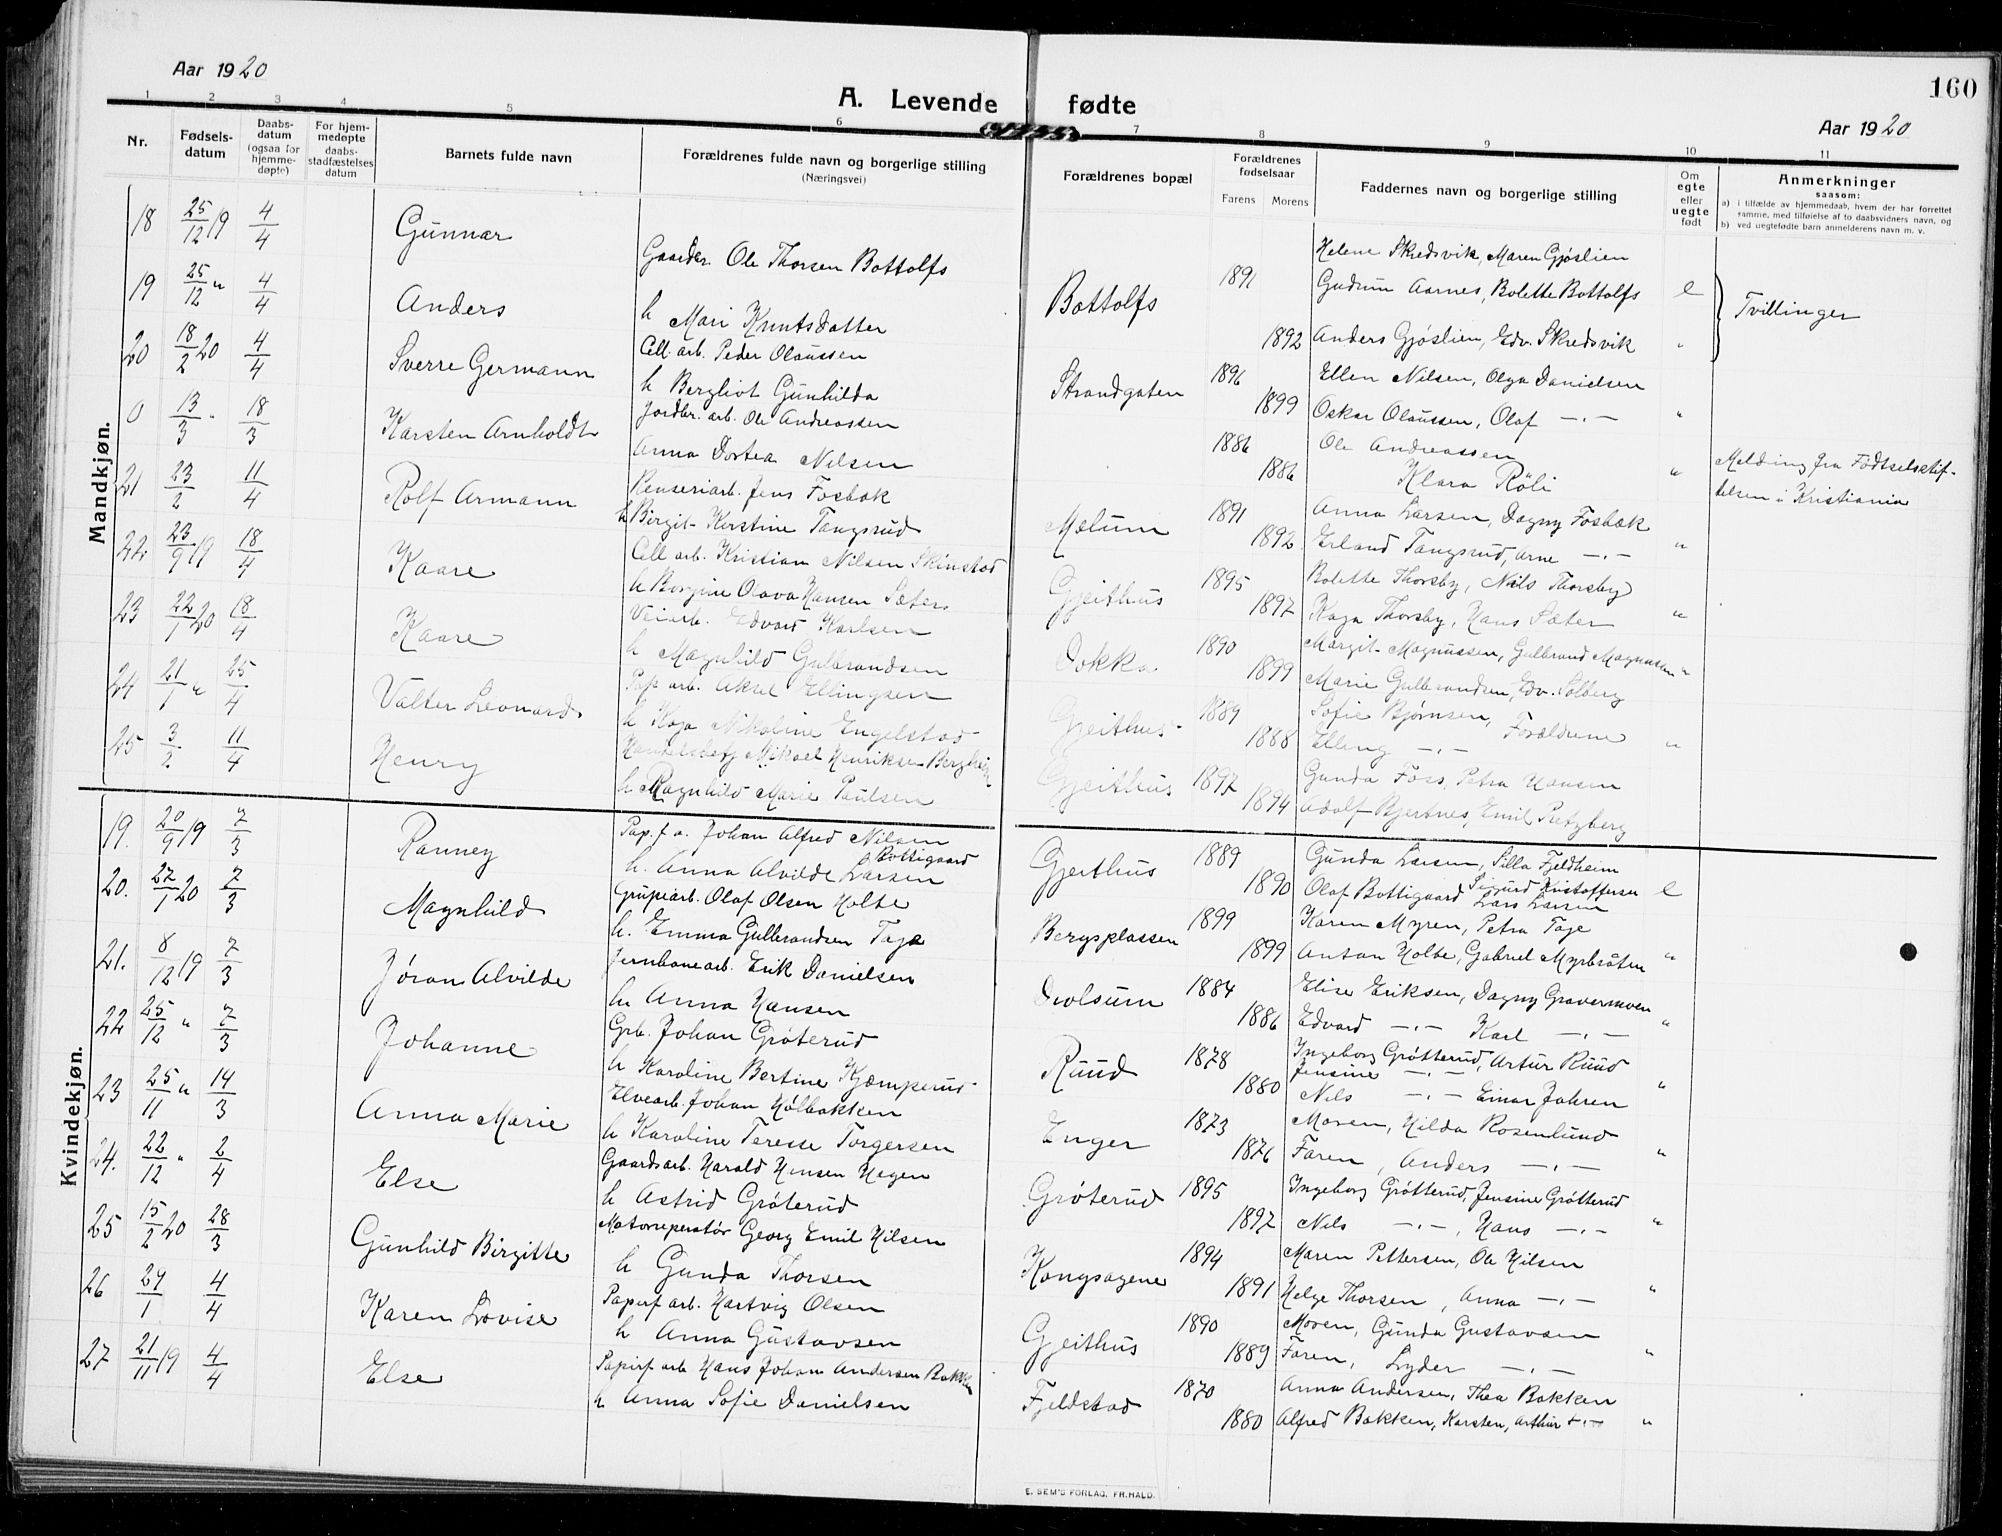 Aar 1920
A. Levende fødte
160
Aar 1920
1 2 3 4 5 6 7 8 9 10 11
Nr.
Fødsels-
datum
Daabs-
datum
(ogsaa for
hjemme-
døpte)
For hjem-
medøpte
daabs-
stadfæstelses
datum
Barnets fulde navn
Forældrenes fulde navn og borgerlige stilling
(Næringsvei)
Forældrenes bopæl
Forældrenes
fødselsaar
Farens Morens
Faddernes navn og borgerlige stilling
Om
egte
eller
uegte
født
Anmerkninger
saasom:
a) i tilfælde av hjemmedaab, hvem der har forrettet
samme, med tilføielse af to daabsvidners navn, og
b) ved uegtefødte barn anmelderens navn m. v.
Mandkjøn.
18 25/12 19 4/4 Gunnar
Gaardbr. Ole Thorsen Bottolfs
Helene Skredsvik, Maren Gjøslien
19 25/12 " 4/4 Anders
h Mari Knutsdatter
Bottolfs 1891 Gudrun Aarnes, Bolette Bottolfs e Tvillinger
1892 Anders Gjøslien, Edv. Skredsvik "
20 18/2 20 4/4 Sverre Germann
Cell. arb. Peder Olaussen
h Bergliot Gunhilda
Strandgaten 1896 Ellen Nilsen, Olga Danielsen
1899 Oskar Olaussen, Olaf -"- "
0 13/3 " 18/3 Karsten Arnholdt
Jordbr. arb. Ole Andreassen
Anna Dortea Nilsen
1886 Ole Andreassen
1886 Klara Røli "
Melding fra Fødtselsstif-
telsen i Kristiania
21 23/2 11/4 Rolf Armann
Renseriarb. Jens Fosbak
h Birgit Kirstine Tangsrud
Mælum 1891 Anna Larsen, Dagny Fosbæk
1892 Erland Tangsrud, Arne -"- "
22 23/9 19 18/4 Kaare
Cell arb. Kristian Nilsen Skinstad
h Borgine Olava Hansen Sæter
Gjeithus 1895 Bolette Thorsby, Nils Thorsby
1897 Kaja Thorsby, Hans Sæter "
23 22/1 20 18/4 Kaare
Veiarb. Edvard Karlsen
h Magnhild Gulbrandsen
Dokka 1890 Margit Magnussen, Gulbrand Magnussen "
1899 Marie Gulbrandsen, Edv. Solberg
24 21/1 " 25/4 Valter Leonard
Pap arb. Aksel Ellingsen
h Kaja Nikoline Engelstad
Gjeithus 1889 Sofie Bjørnsen, Forældrene
1888 Elling -"- "
25 3/2 11/4 Henry
Mikael Henriksen Bergheim
h Ragnhild Marie Paulsen
Gjeithus 1897 Gunda Foss, Petra Hansen
1894 Adolf Bjertnes, Emil Pretzberg
Kvindekjøn.
19. 20/9 19 7/3 Ranney
Pap. f a. Johan Alfred Nilsen
Bottigaard
h. Anna Alvilde Larsen
Gjeithus 1889 Gunda Larsen, Silla Fjeldheim
1890 Olaf Bottigaard Sigurd Kristoffersen Lars Larsen e
20. 27/1 20 7/3 Magnhild
Grupearb. Olaf Olsen Holte
h. Emma Gulbrandsen Tage
Bergsplassen 1899 Karen Myren, Petra Tage
1899 Anton Holte, Gabriel Myrbråten "
21. 8/12 19 7/3 Jøran Alvilde
Jernbanearb. Erik Danielsen
h. Anna Hansen
Dvolsum 1884 Elise Eriksen, Dagny Gravermoen
1886 Edvard -"- Karl -"- "
22 25/12 " 7/3 Johanne
Grb. Johan Grøterud
h Karoline Bertine Kjæmperud
Ruud 1878 Ingeborg Grøtterud, Artur Ruud
Jensine -"-
1880 Nils -"- Einar Jahren "
23 25/11 " 14/3 Anna Marie
Elvearb. Johan Hølbakken
h Karoline Terese Torgersen
Enger 1873 Moren, Hilda Rosenlund
1876 Faren, Anders -"- "
24. 22/12 " 2/4 Else
Gaardsarb. Harald Hansen Hagen
h Astrid Grøterud
Grøterud 1895 Ingeborg Grøtterud, Jensine Grøtterud
1897 Nils -"-, Hans -"- "
25 15/2 20 28/3 Gunhild Birgitte
Motorreperatør Georg Emil Nilsen
h Gunda Thorsen
Kongsagene 1894 Maren Pettersen, Ole Nilsen
1891 Helge Thorsen, Anna -"- "
26 29/1. 4/4 Karen Lovise
Papirf arb. Hartvig Olsen
h Anna Gustavsen
Gjeithus 1890 Moren, Gunda Gustavsen
1889 Faren, Lyder -"- "
27 21/11 19 4/4 Else
Papirf arb Hans Johan Andersen Bakken
h Anna Sofie Danielsen
Fjeldstad 1870 Anna Andersen, Thea Bakken
1880 Alfred Bakken, Karsten, Arthur -"- "
E. SEM'S FORLAG, FR.HALD.